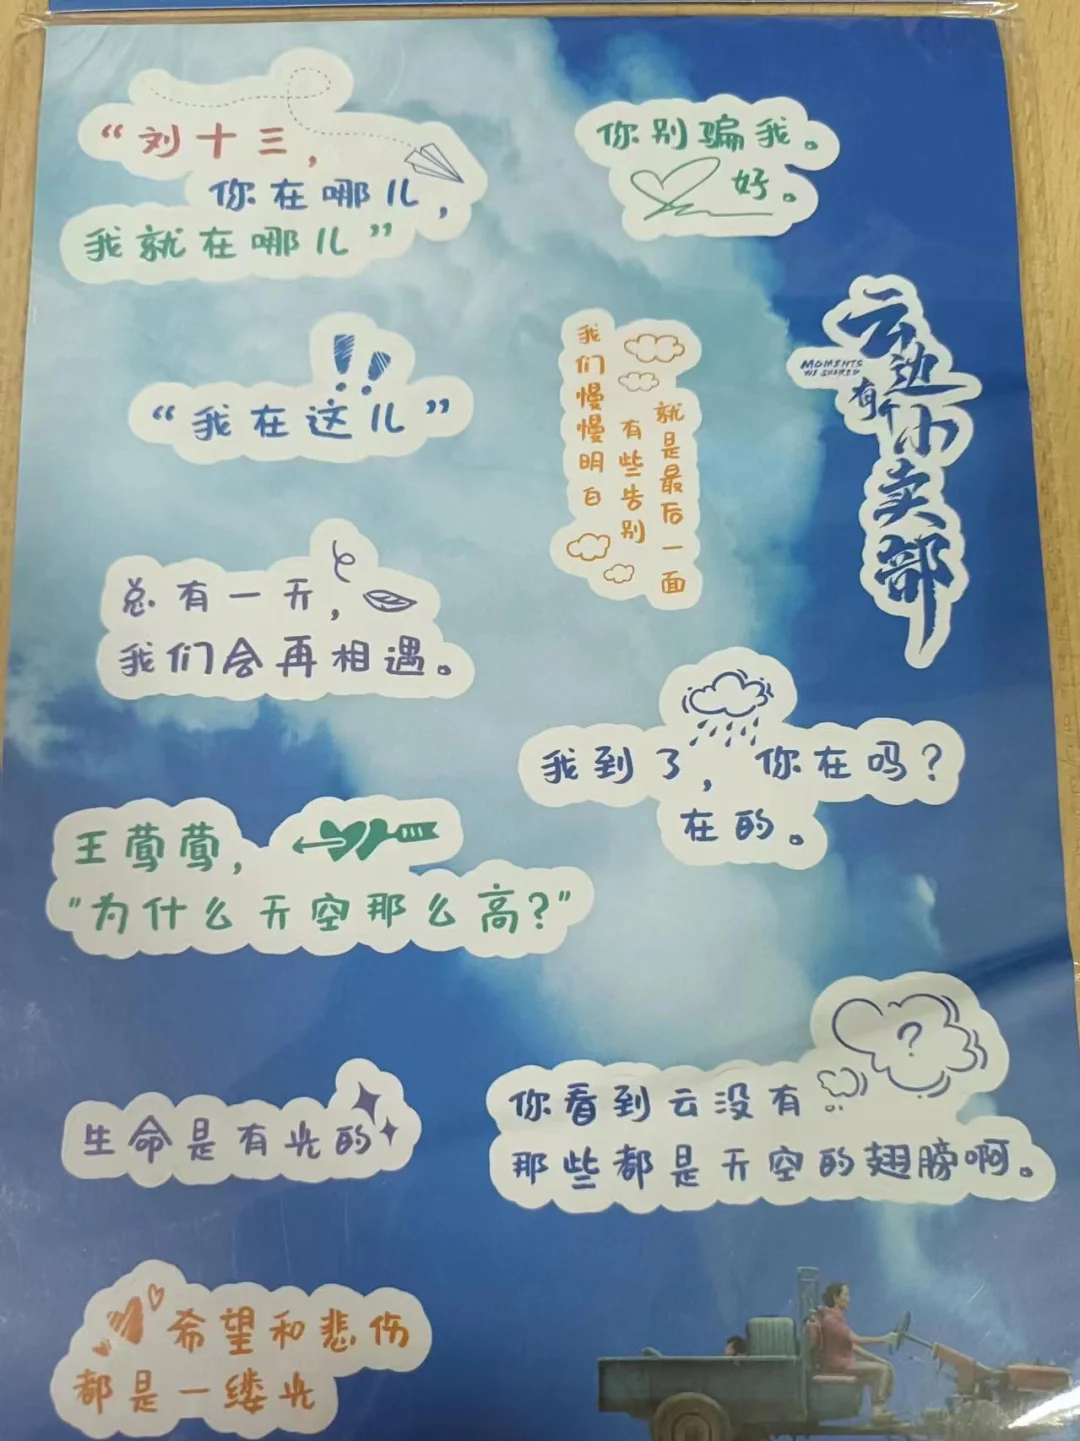 “刘十三，
你在哪儿，
我就在哪儿”
你别骗我。
好。
“我在这儿”
我们慢慢明白
有些告别
就是最后一面
云边
有个
小卖部
MOMENTS
WE SHARED
总有一天，
我们会再相遇。
我到了，你在吗？
在的。
王莺莺，
"为什么天空那么高？"
生命是有光的
?
你看到云没有
那些都是天空的翅膀啊。
希望和悲伤
都是一缕光